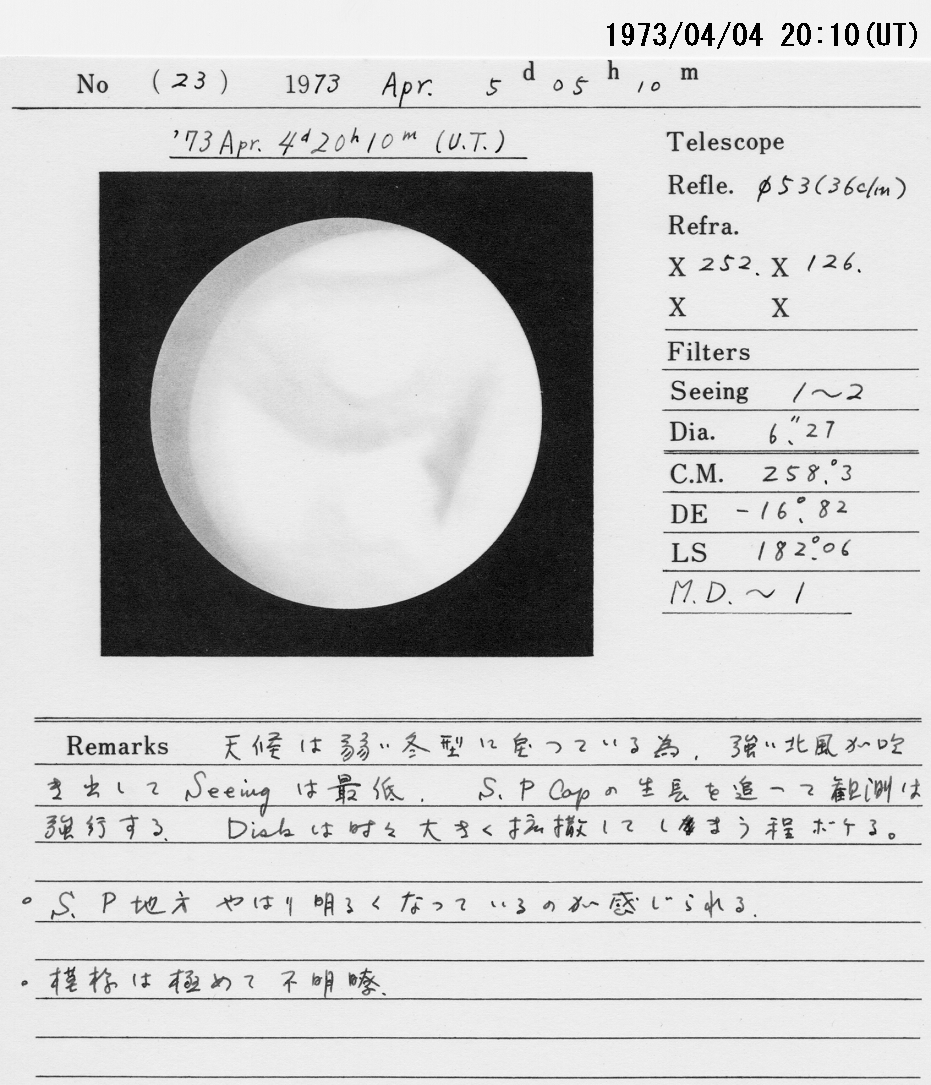 1973/04/04 20:10(UT)
No (23) 1973 Apr. 5 d 05 h 10 m
'73 Apr. 4d20h10m (U.T.)
Telescope
Refle. φ53(36c/m)
Refra.
X 252. X 126.
X X
Filters
Seeing 1～2
Dia. 6."27
C.M. 258.°3
DE -16.°82
LS 182.°06
M.D. ～ 1
Remarks 天候は弱い冬型になっている為、強い北風が吹
き出して Seeing は最低. S.P Capの生長を追って観測は
強行する. Diskは時々大きく拡散してしまう程ボケる。
。S.P地方 やはり明るくなっているのが感じられる.
。模様は極めて不明瞭.